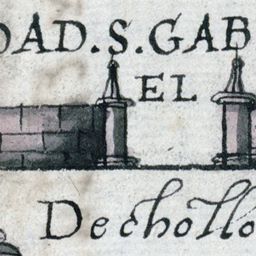 DAD.S.GAB
EL
Dechollo